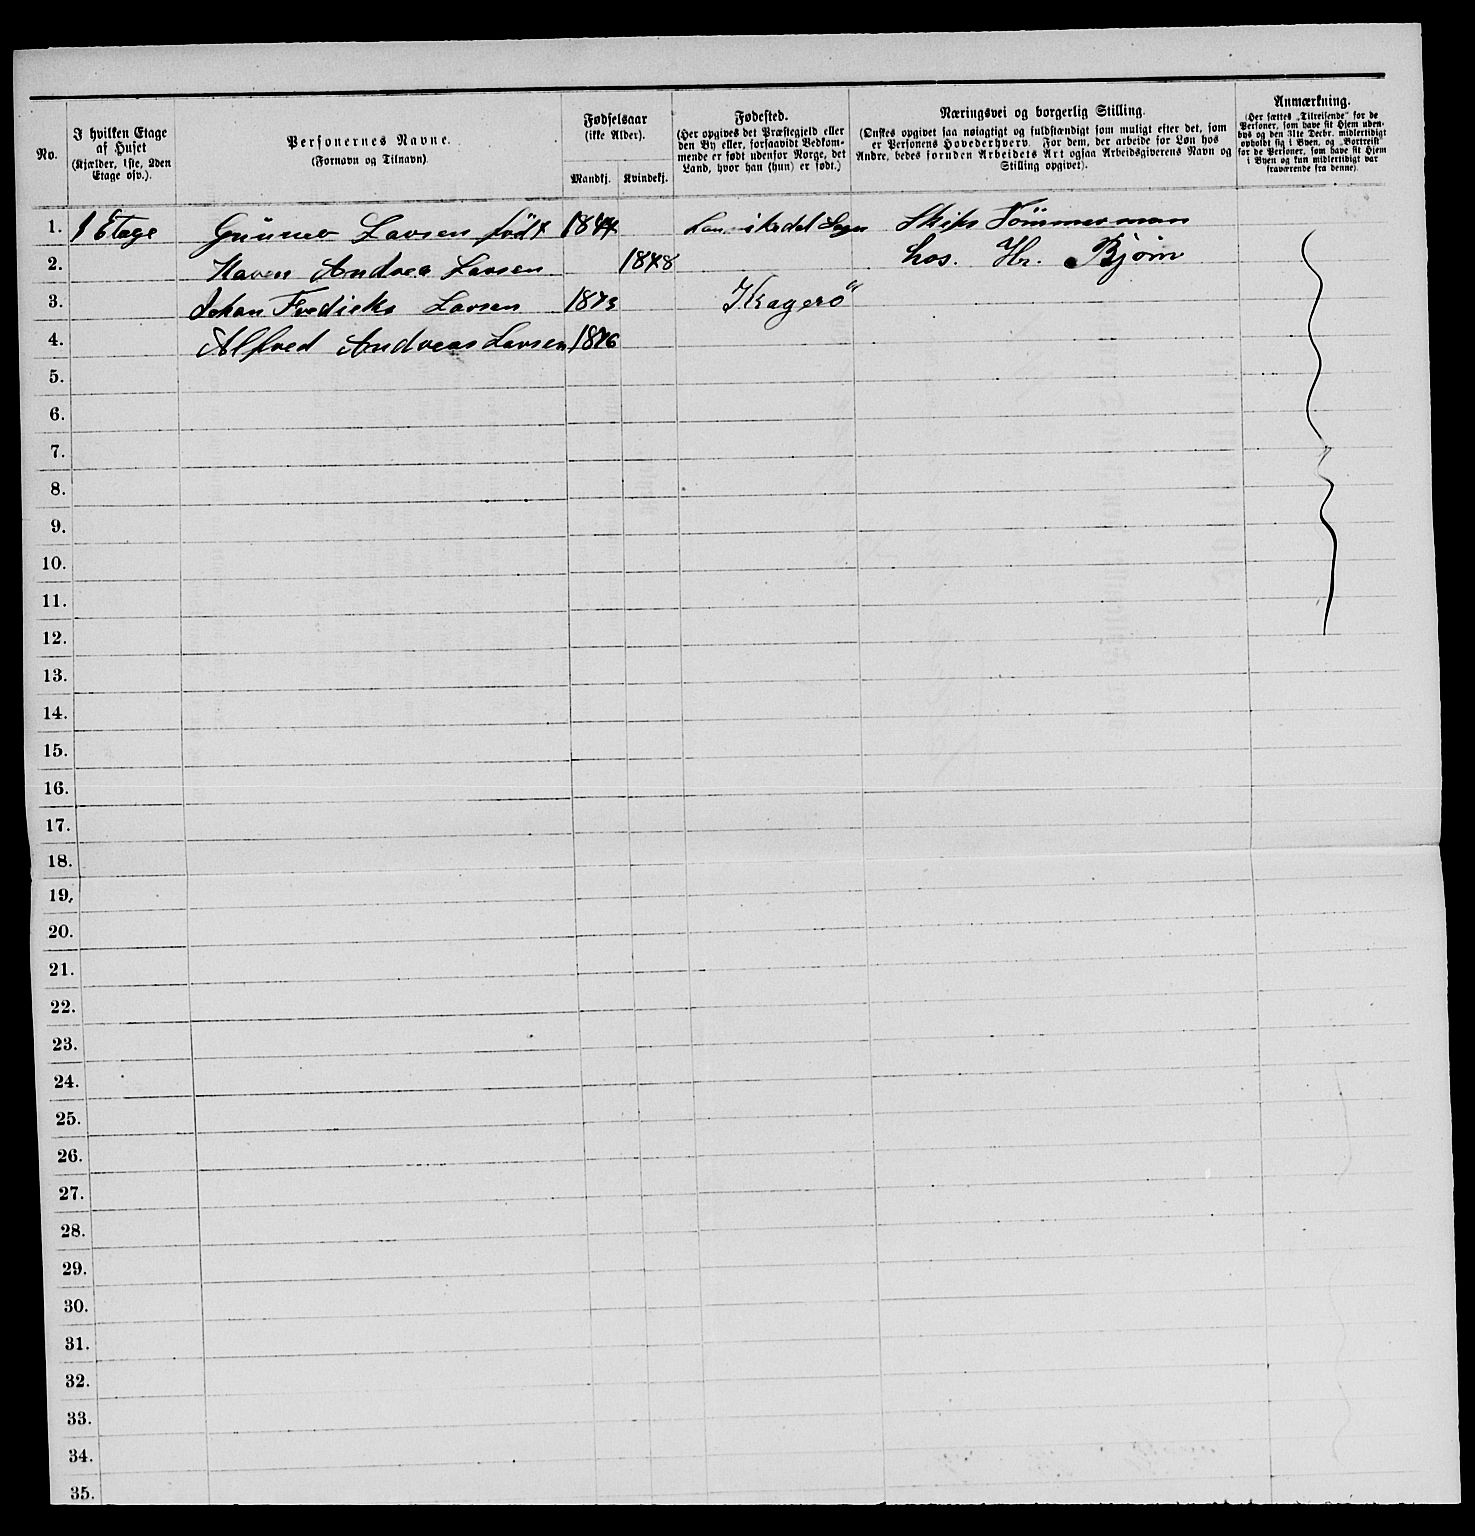 No.
I hvilken Etage af Huset (Kjælder, 1ste, 2den Etage osv.).
Personernes Navne. (Fornavn og Tilnavn)
Fødselsaar (ikke Alder).
Mandkj. Kvindekj.
Fødested. (Her opgives det Præstegjeld eller den By eller, forsaavidt Vedkommende er født udenfor Norge, det Land, hvor han (hun) er født.)
Næringsvei og borgerlig Stilling. (Ønskes opgivet saa nøiagtigt og fuldstændigt som muligt efter det, som er Personens Hovederhverv. For dem, der arbeide for Løn hos Andre, bedes foruden Arbeidets Art ogsaa Arbeidsgiverens Navn og Stilling opgivet).
Anmærkning. (Her sættes „Tilreisende" for de Personer, som have sit Hjem udenbys og den 31te Decbr. midlertidigt opholdt sig i Byen, og „Bortreist" for de Personer, som have sit Hjem i Byen og kun midlertidigt var fraværende fra denne)
1. 1 Etage Gunner Larsen født 1844 Skibs Tömmerman
2. Karen Andrea Larsen 1848 hos. Hr. Bjørn
3. Johan Fredicks Larsen 1873 Kragerö
4. Alfred Andreas Larsen 1876
5.
6.
7.
8.
9.
10.
11.
12.
13.
14.
15.
16.
17.
18.
19.
20.
21.
22.
23.
24.
25.
26.
27.
28.
29.
30.
31.
32.
33.
34.
35.